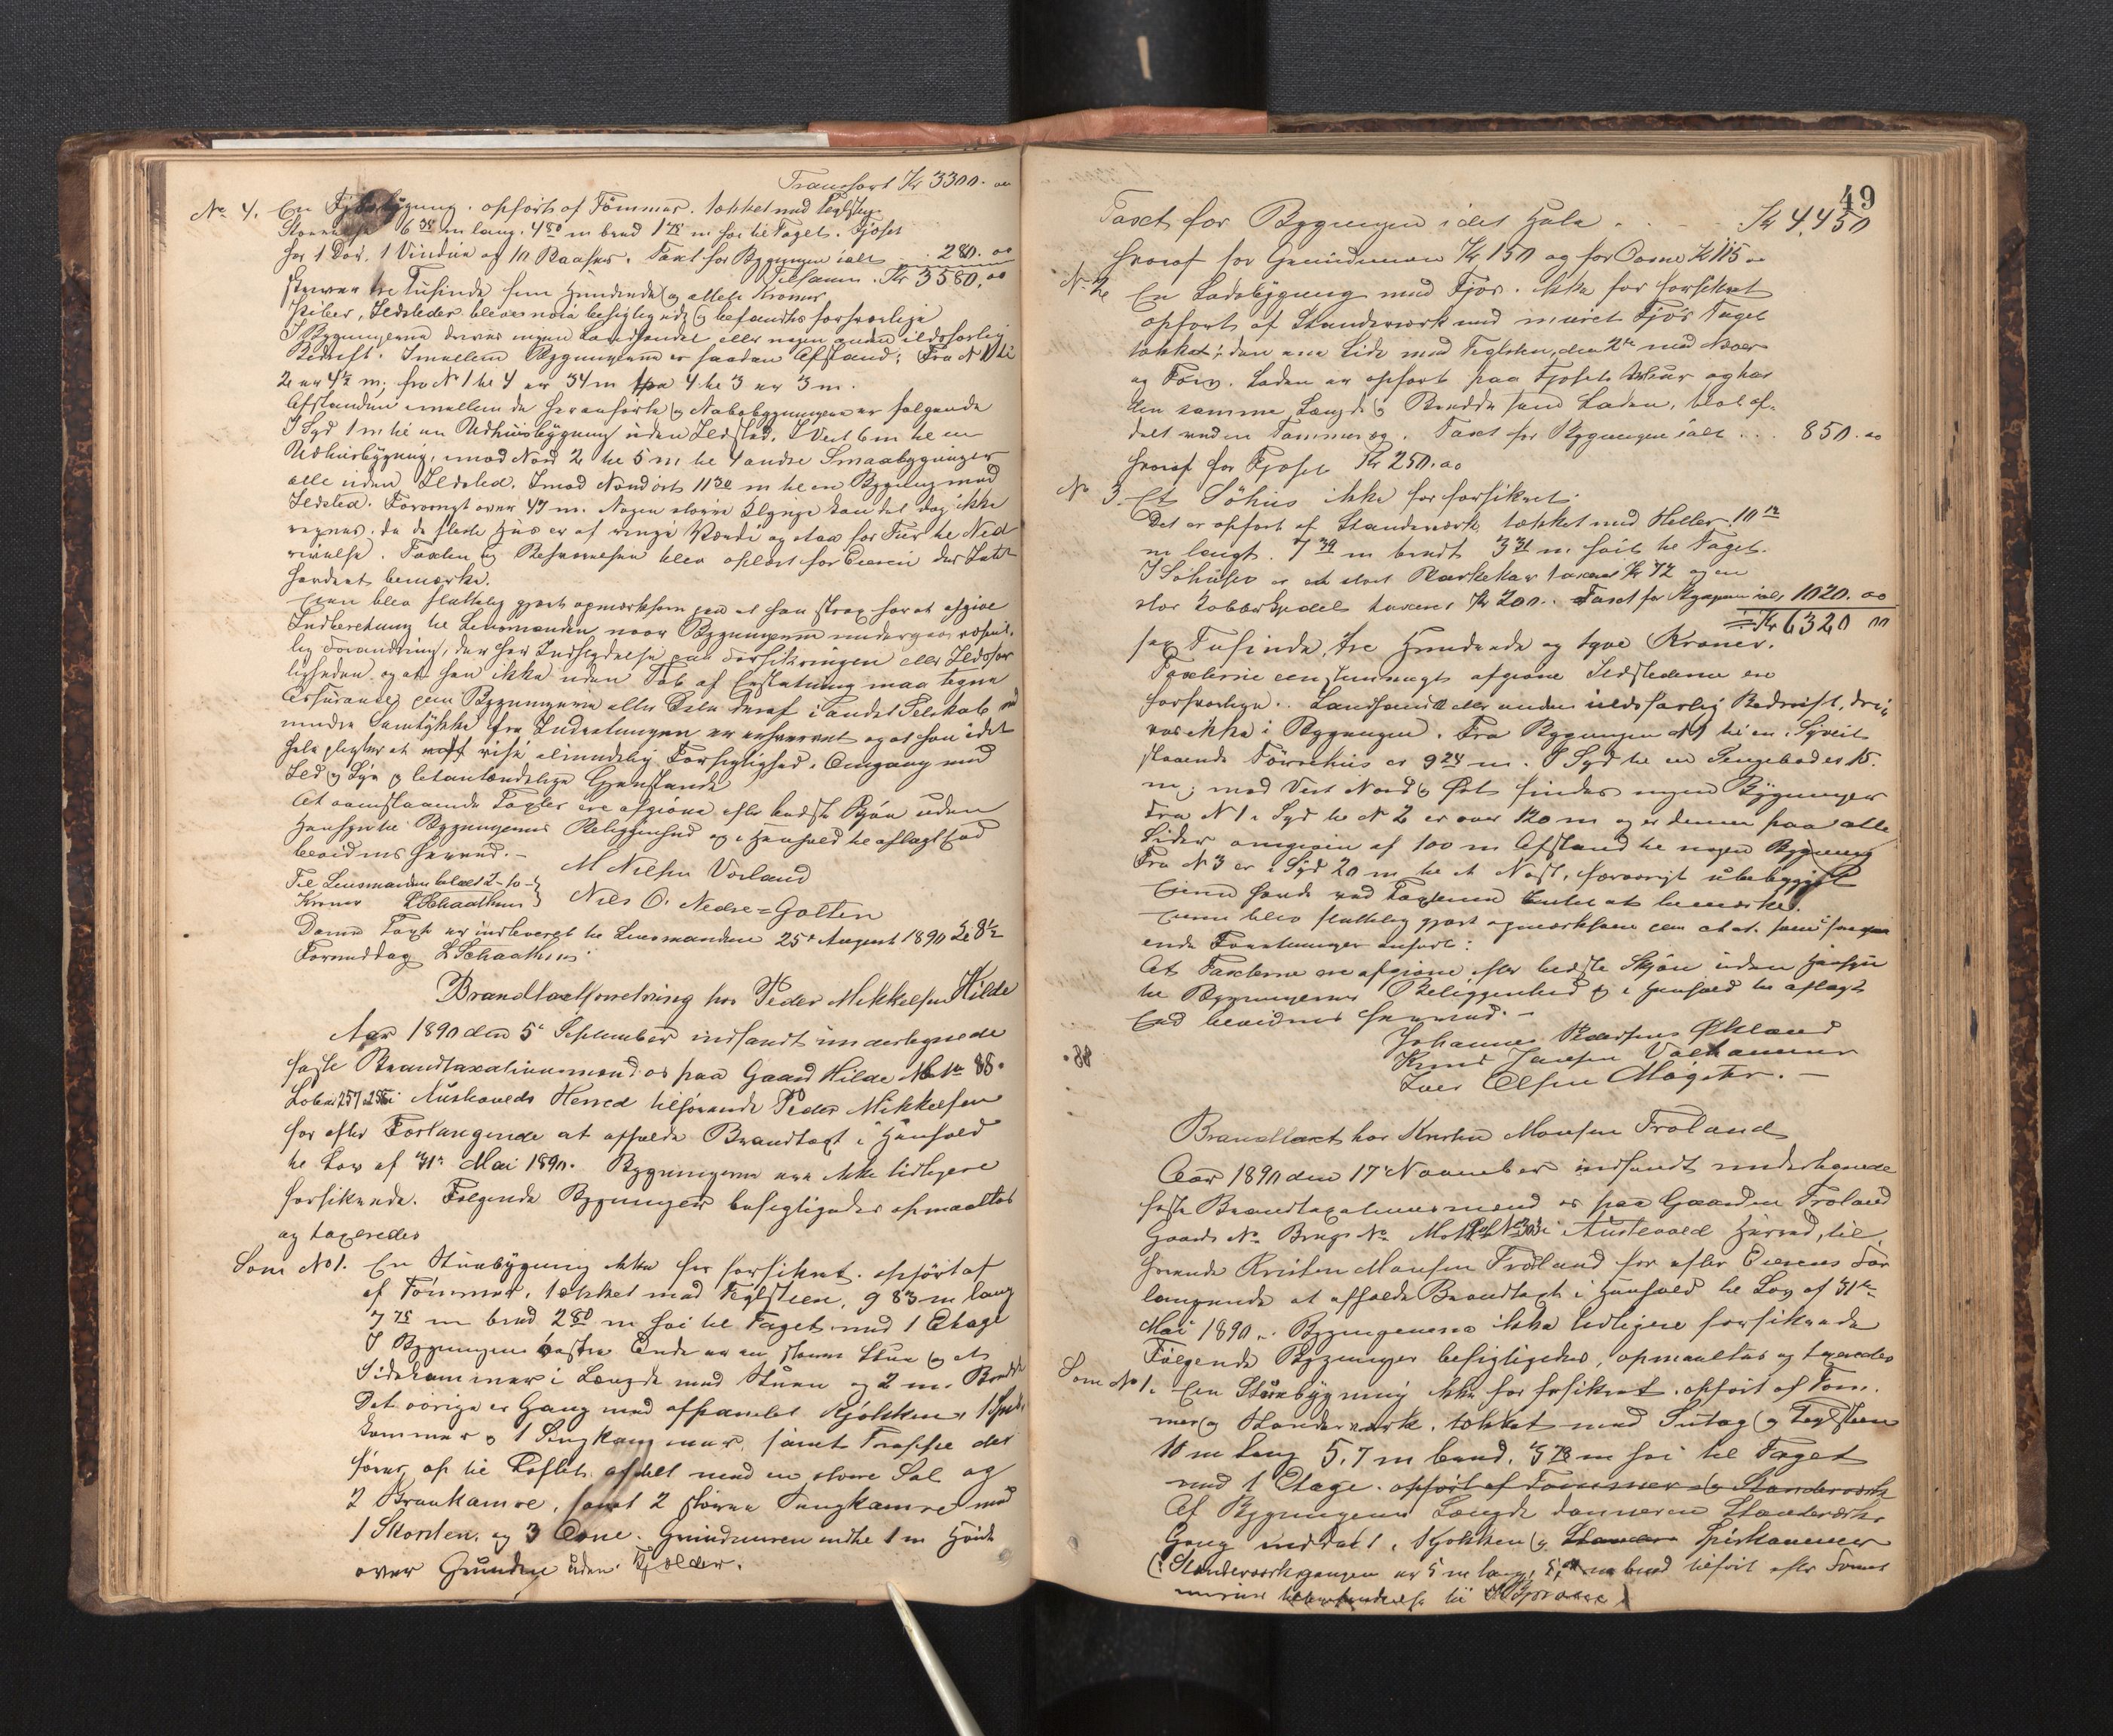 Transport Kr 3300. 00
No 4. En Fjøsbygning. opført af Tømmer. tækket med Teglsten
Størrelse 6 m lang. 4 80 m bred 1 75 m høi til Taget. Fjøset
har 1 Dør, 1 Vindue og 10 Baaser. Taxt for Bygningen ialt .. 280. 00
Tilsamm. Kr 3580. 00
skriver tre Tusinde fem Hundrede og otteti Kroner
Piber, Ildsteder bleve nøie besigtigede og befandtes forsvarlige
I Bygningerne drives ingen Landhandel eller nogen anden ildsfarlig
Bedrift. Imellem Bygningerne er saadan Afstand: Fra N 1 til
2 er 4½ m; fra N 1 til 4 er 34 m fra 4 til 3 er 3 m.
Afstanden imellem de heranførte og Nabobygningerne er følgende
I Syd 1 m til en Udhusbygning uden Ildsted. I Vest 6 m til en
Udhusbygning, imod Nord 2 til 5 m til 4 andre Smaabygninger
alle uden Ildsted. Imod Nordost 11 30 m til en Bygning med
Ildsted. Forøvrigt over 47 m. Nogen større Klynge kan det dog ikke
regnes. da de fleste Huse er af ringe Værdi og staa for Tur til Ned
rivelse. Taxten og Beskrivelsen blev oplæst for Eieren der Intet
havde at bemærke.
Eieren blev skriftlig gjort opmærksom paa at han strax har at afgive
Indberetning til Lensmanden naar Bygningerne undergaar væsent-
lig Forandring, der har Indflydelse paa Forsikringen eller Ildsfar
ligheden og at han ikke uden Tab af Erstatning maa tegne
Assurance paa Bygningerne eller Dele deraf i andet Selskab med
mindre Samtykke fra Indretningen er erhvervet og at han i det
hele pligter at vise almindelig Forsigtighed i Omgang med
Ild og Lys og letantændelige Gjenstande
At ovenstaaende Taxter ere afgivne efter bedste Skjøn uden
Hensyn til Bygningernes Beliggenhed og i Henhold til aflagt Ed
bevidnes herved. –
M Nilsen Vorland
Til Lensmanden betalt 2-10-
Kroner L Schaathun
Nils O. Nedre=Golten
Denne Taxt er indleveret til Lensmanden 25de August 1890 Kl 8½
Formiddag L Schaathun
Brandtaxtforretning hos Peder Mikkelsen Hilde
Aar 1890 den 5te September indfandt undertegnede
faste Brandtaxationsmænd os paa Gaard Hilde M No 88.
Løbeno 257 & 258 i Austevolds Herred tilhørende Peder Mikkelsen
for efter Forlangende at afholde Brandtaxt i Henhold
til Lov af 31te Mai 1890. Bygningerne ere ikke tidligere
forsikrede. Følgende Bygninger besigtigedes opmaaltes
og taxeredes
Som No 1. En Stuebygning ikke før forsikret. opført af
af Tømmer, tækket med Teglsteen, 9 83 m lang
7 75 m bred 2 80 m høi til Taget med 1 Etage
I Bygningens østre Ende er en større Stue og et
Sidekammer i Længde med Stuen og 2 m. Bredde
Det øvrige er Gang med afpanelet Kjøkken, 1 Spise
kammer og 1 Sengkammer, samt Trappe der
fører op til Loftet, afdelt med en større Sal og
2 Brankamre, samt 2 større Sengkamre med
1 Skorsten, og 3 Ovne. Grundmuren indtil 1 m Høide
over Grunden uden Kjælder.
49
Taxt for Bygningen i det Hele . . . Kr 4,450
hvoraf for Grundmuren Kr 150 og for Ovne Kr 115 00
N. 2 En Ladebygning med Fjøs. Ikke før forsikret
opført af Standerværk med muret Fjøs Taget
tækket i den ene Side med Teglsten, den 2den med Næver
og Torv. Laden er opført paa Fjøsets Mur og har
den samme Længde og Bredde som Laden, blot af-
delt ved en Tømmervæg. Taxt for Bygningen ialt ... 850. 00
hvoraf for Fjøset Kr 250. 00
No 3. Et Søhus ikke før forsikret.
Det er opført af Standerværk tækket med Heller. 10 12
m langt. 7 39 m bredt 3 31 m høit til Taget.
I Søhuset er et stort Barkekar taxeret Kr 72 og en
stor Kobberkjedel taxeret Kr 200.. Taxt for Bygningen ialt 1020. 00
= Kr 6320 00
sex Tusinde, tre Hundrede og tyve Kroner.
Taxterne eenstemmigt afgivne Ildstederne ere
forsvarlige.. Landhandel eller anden ildsfarlig Bedrift, dri-
ves ikke i Bygningen. Fra Bygningen N 1 til en i Sydvest
staaende Tørvehus er 9 24 m. I Syd til en Sengebod er 15.
m; mod Vest Nord og Øst findes ingen Bygninger
Fra N 1 i Syd til N 2 er over 120 m og er denne paa alle
Sider omgiven af 100 m Afstand til nogen Bygning
Fra N 3 er i Syd 20 m til et Nøst, forøvrigt ubebygget
Eieren havde ved Taxterne Intet at bemærke.
Eieren blev skriftlig gjort opmærksom paa at
ende Forretninger anført:
At Taxterne ere afgivne efter bedste Skjøn uden Hensyn
til Bygningernes Beliggenhed og i Henhold til aflagt
Ed bevidnes herved. –
Johannes Pedersen Økland
Knud Jansen Valhammer
Iver Olsen Møgster. –
Brandtaxt hos Kristen Monsen Frøland
Aar 1890 den 17de November indfandt undertegnede
faste Brandtaxationsmænd os paa Gaarden Frøland
Gaards No Brugs No i Austevold Herred, til
hørende Kristen Monsen Frøland for efter Eierens For
langende at afholde Brandtaxt i Henhold til Lov af 31te
Mai 1890. Bygningerne ere ikke tidligere forsikrede
Følgende Bygninger besigtigedes, opmaaltes og taxeredes
Som No 1. En Stuebygning ikke før forsikret. opført af Tøm-
mer og Standerværk. tækket med Sutag og Teglsteen
10 m lang 5,7 m bred. 3 78 m høi til Taget
med 1 Etage. opført af Tømmer og Standerværk
Af Bygningens Længde dannes en Standerværks
Gang inddelt i Kjøkken og Spiskammer
(: Standerværkgangen er 5 m lang, m bred tilført efter Tømmer